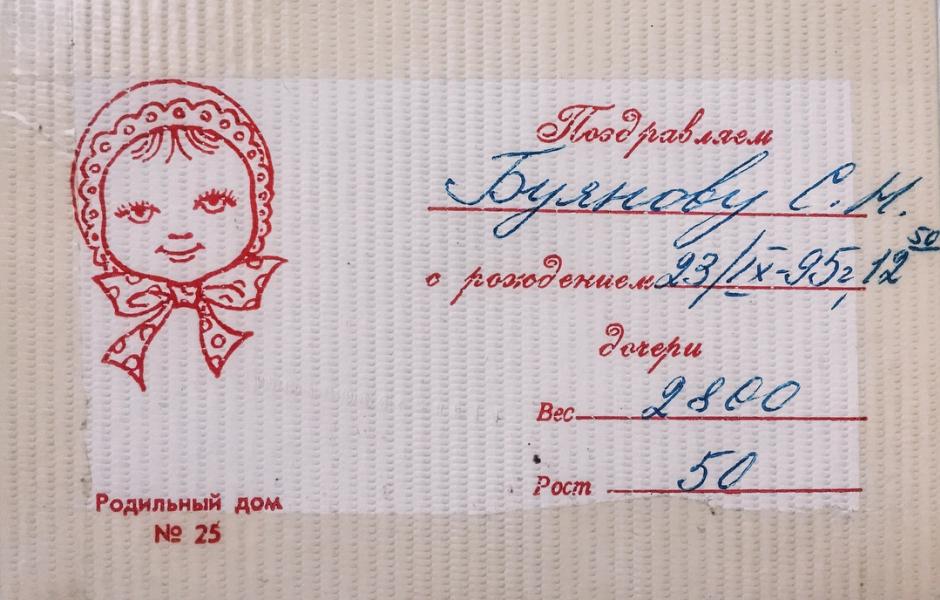 Поздравляем
Буянову С. Н.
с рождением 23/IX-95г, 12 50
дочери
Вес 2800
Рост 50
Родильный дом
№ 25